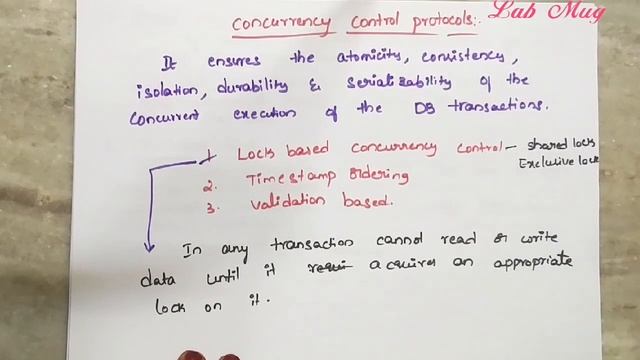 Lab Mug
Concurrency Control protocols:-
It ensures the atomicity, consistency,
isolation, durability & serializability of the
concurrent execution of the DB transactions.
1 Lock based concurrency control - shared lock
Exclusive lock
2. Timestamp ordering
3. Validation based.
In any transaction cannot read or write
data until it acquires an appropriate
lock on it.